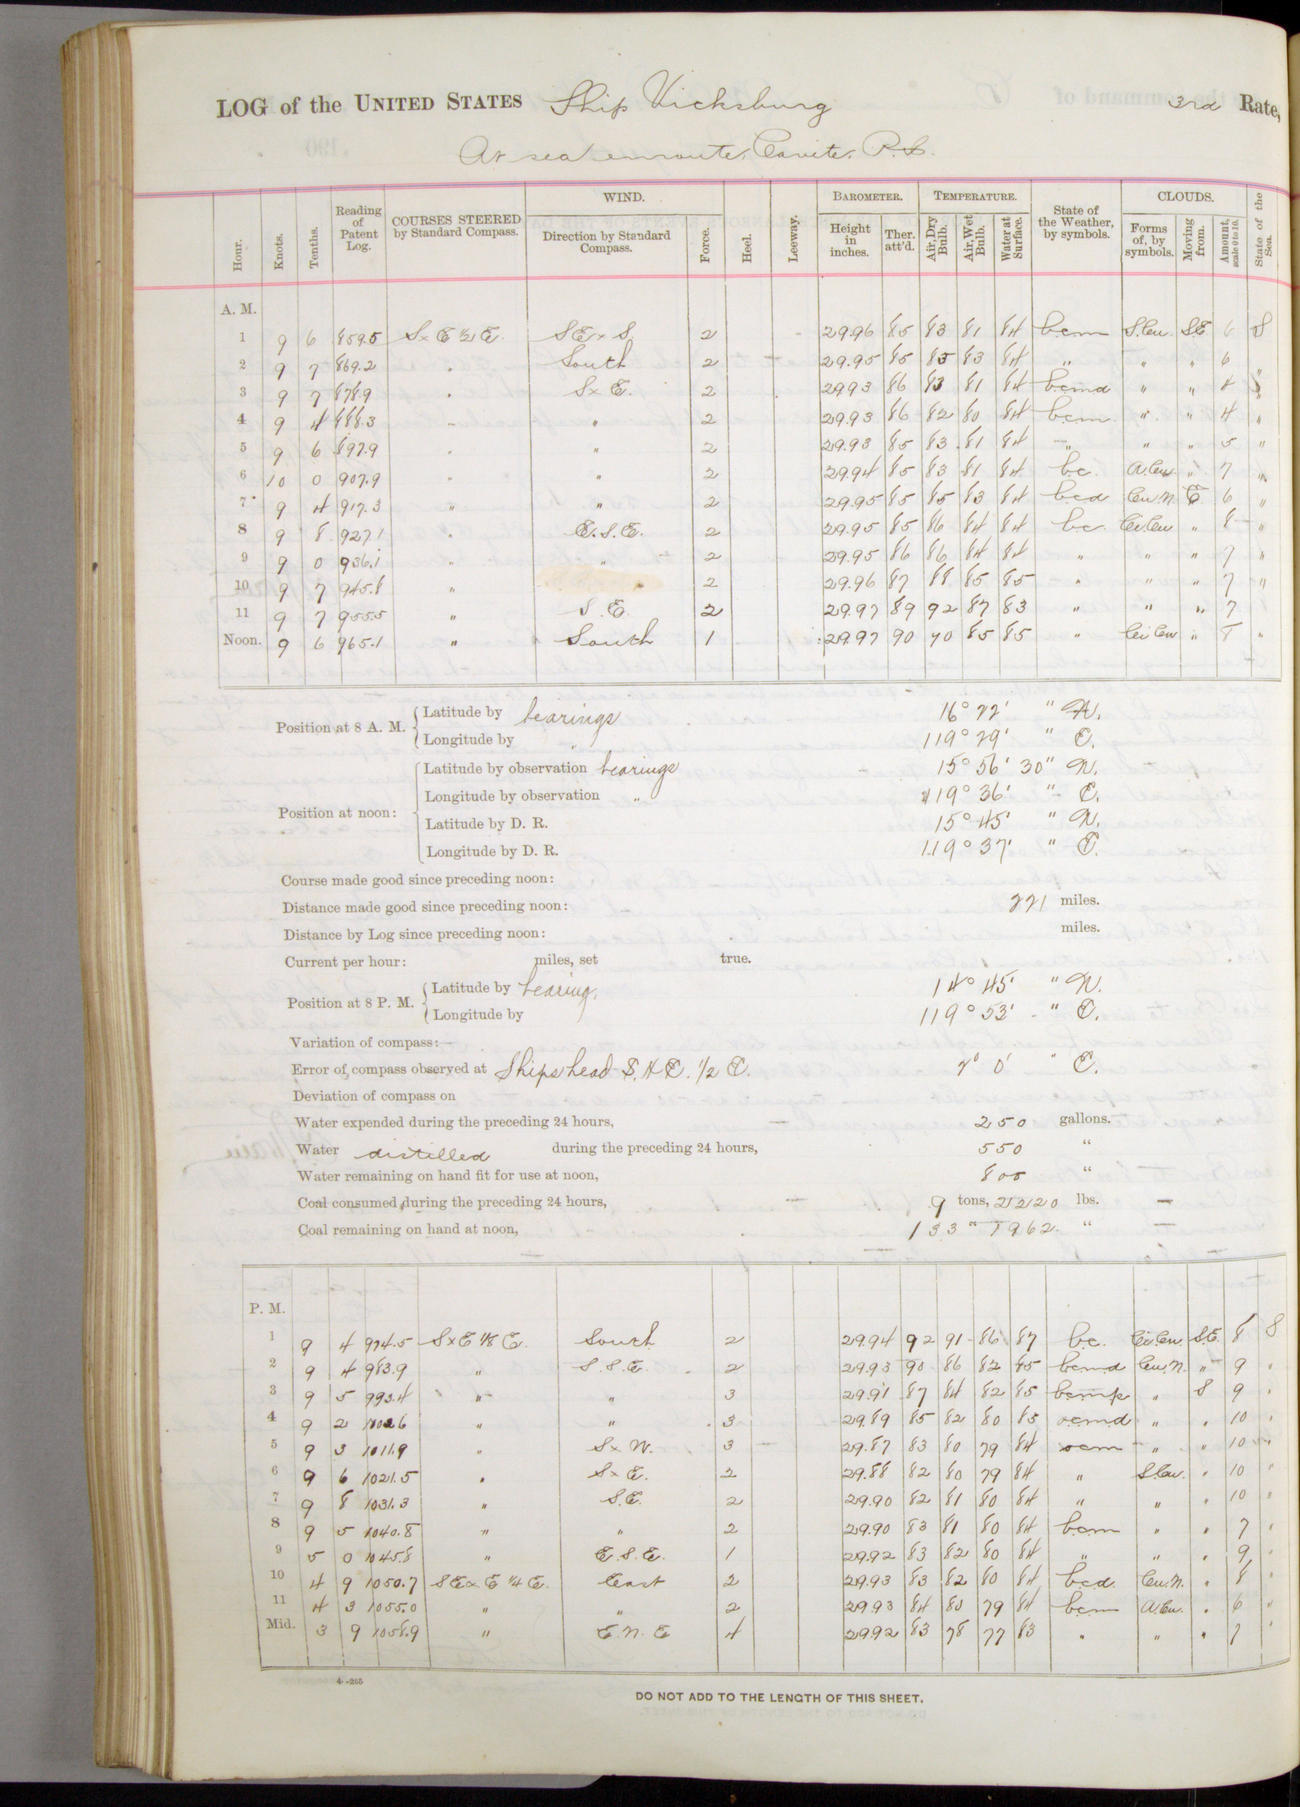 LOG of the UNITED STATES Ship Vicksburg 3rd Rate,
At sea enroute Cavite, P.I.
Hour. Knots. Tenths. Reading of Patent Log. COURSES STEERED by Standard Compass. WIND. Direction by Standard Compass. Force. Heel. Leeway. BAROMETER. Height in inches. Ther. att'd. TEMPERATURE. Air, Dry Bulb. Air, Wet Bulb. Water at Surface. State of the Weather, by symbols. CLOUDS. Forms of, by symbols. Moving from. Amount, scale 0 to 10. State of the Sea.
A. M.
1 9 6 859.5 SxE ½ E. SExS. 2 29.96 85 83 81 84 bcm S.Cu. S.E 6 S
2 9 7 869.2 " South 2 29.95 85 85 83 84 " " " 6 "
3 9 7 878.9 " SxE. 2 29.93 86 83 81 84 bcmd " " 4
4 9 4 888.3 " " 2 29.93 86 82 80 84 bcm " " 4 "
5 9 6 897.9 " " 2 29.93 85 83 81 84 " " " 5 "
6 10 0 907.9 " " 2 29.94 85 83 81 84 bc. A.Cu. " 7 "
7 9 4 917.3 " " 2 29.95 85 85 83 84 bcd Cu.N. E 6 "
8 9 8 927.1 " E.S.E. 2 29.95 85 86 84 84 bc Ci.Cu " 8 "
9 9 0 936.1 " " 2 29.95 86 86 84 84 " " " 7 "
10 9 7 945.8 " 2 29.96 87 88 85 85 " " " 7 "
11 9 7 955.5 " S.E. 2 29.97 89 92 87 83 " " " 7
Noon. 9 6 965.1 " South 1 29.97 90 90 85 85 " Ci Cu " 8 "
Position at 8 A. M. Latitude by bearings 16° 22' " N.
Longitude by " 119° 29' " E.
Position at noon: Latitude by observation bearings 15° 56' 30" N.
Longitude by observation " 119° 36' " E.
Latitude by D. R. 15° 45' " N.
Longitude by D. R. 119° 37' " E.
Course made good since preceding noon:
Distance made good since preceding noon: 221 miles.
Distance by Log since preceding noon: miles.
Current per hour: miles, set true.
Position at 8 P. M. Latitude by bearing. 14° 45' " N.
Longitude by 119° 53' " E.
Variation of compass:
Error of compass observed at Ships head S. x E. 1/2 E. 2° 0' " E.
Deviation of compass on
Water expended during the preceding 24 hours, 250 gallons.
Water distilled during the preceding 24 hours, 550 "
Water remaining on hand fit for use at noon, 800 "
Coal consumed during the preceding 24 hours, 9 tons, lbs.
Coal remaining on hand at noon, 133 " 1962 "
P. M.
1 9 4 974.5 SxE ⅛ E. South 2 29.94 92 91 86 87 bc. Ci.Cu. S.E. 8 S
2 9 4 983.9 " S.S.E. 2 29.93 90 86 82 85 bcmd Cu.N. " 9 "
3 9 5 993.4 " " 3 29.91 87 84 82 85 bcmp " S 9 "
4 9 2 1002.6 " " 3 29.89 85 82 80 85 ocmd " " 10 "
5 9 3 1011.9 " SxW. 3 29.87 83 80 79 84 ocm " " 10 "
6 9 6 1021.5 " SxE. 2 29.88 82 80 79 84 " S.Cu. " 10 "
7 9 8 1031.3 " S.E. 2 29.90 82 81 80 84 " " " 10 "
8 9 5 1040.8 " " 2 29.90 83 81 80 84 bcm " " 7 "
9 5 0 1045.8 " E.S.E. 1 29.92 83 82 80 84 " " " 9 "
10 4 9 1050.7 SExE ¼ E. East 2 29.93 83 82 80 84 bcd. Cu.N. " 8 "
11 4 3 1055.0 " " 2 29.93 84 80 79 84 bcm A.Cu. " 6 "
Mid. 3 9 1058.9 " E.N.E 4 29.92 83 78 77 83 " " " 7 "
4-265
DO NOT ADD TO THE LENGTH OF THIS SHEET.